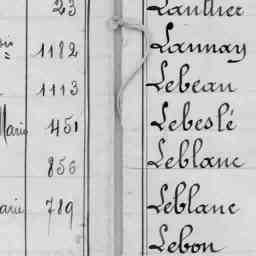 23 Laulier
1182 Launay
1113 Lebeau
Marie 451 Lebeslé
856 Leblanc
arie 789 Leblanc
Lebon